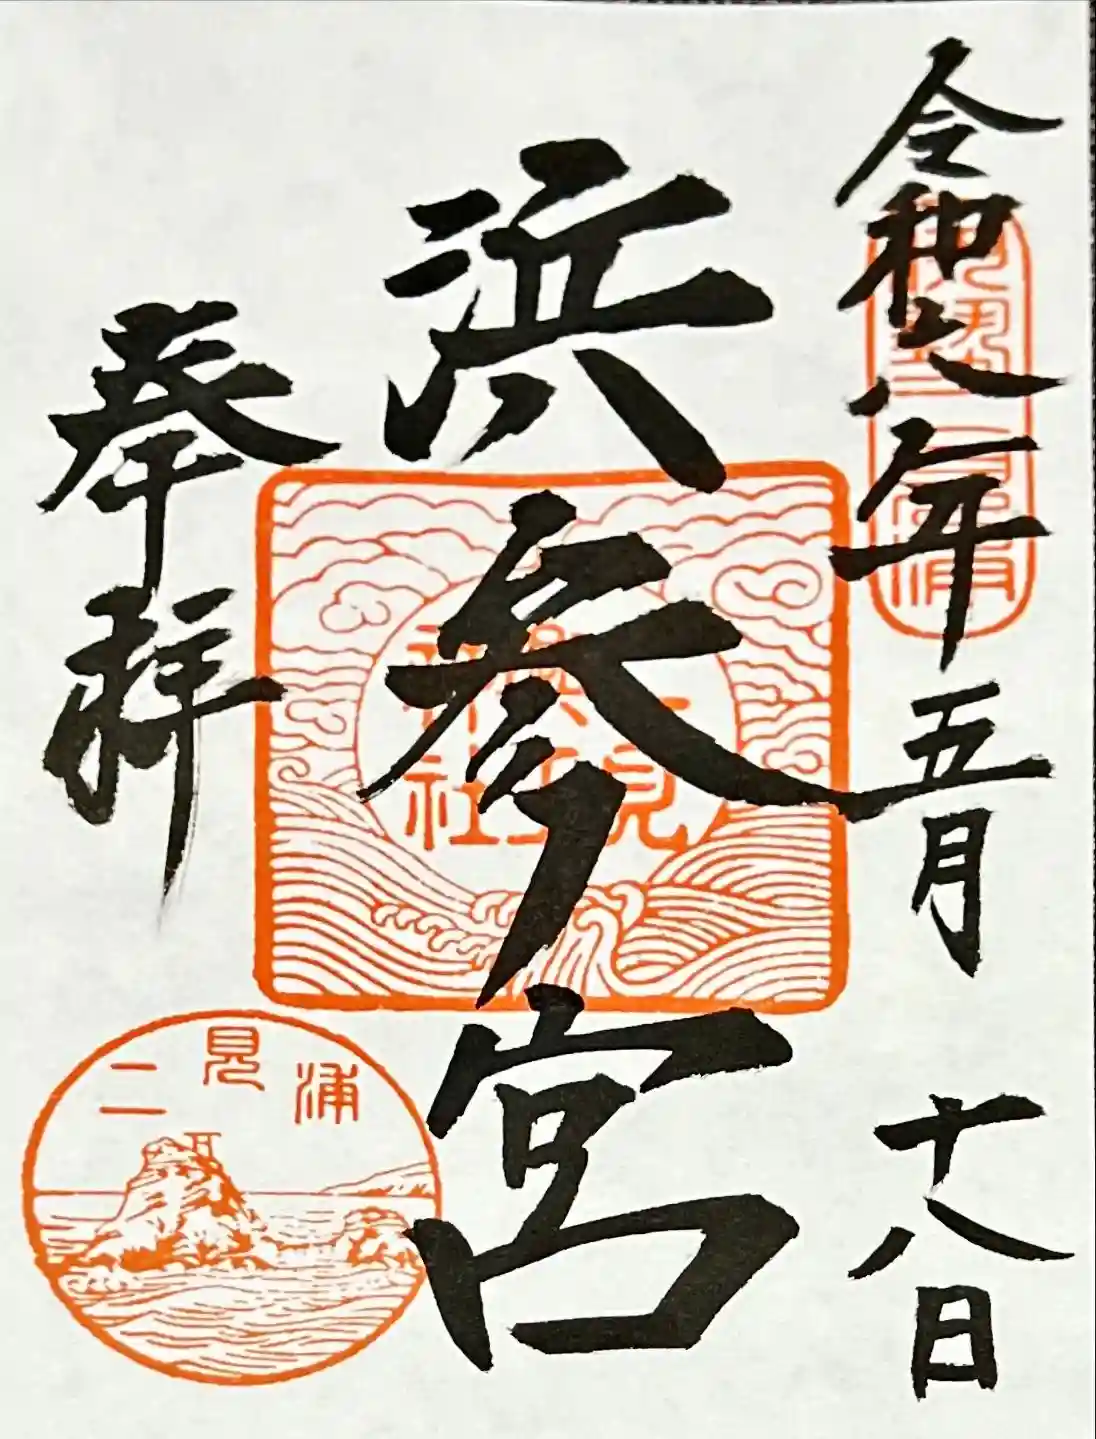 令和八年五月十八日
伊勢二見浦
浜参宮
二見興玉神社
奉拝
二見浦